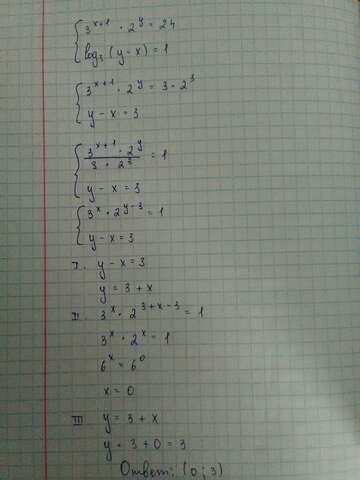 3^{x+1} · 2^y = 24
log_3 (y - x) = 1
3^{x+1} · 2^y = 3 · 2^3
y - x = 3
\frac{3^{x+1} · 2^y}{3 · 2^3} = 1
y - x = 3
3^x · 2^{y-3} = 1
y - x = 3
I. y - x = 3
y = 3 + x
II. 3^x · 2^{3+x-3} = 1
3^x · 2^x = 1
6^x = 6^0
x = 0
III y = 3 + x
y = 3 + 0 = 3
Ответ: (0; 3)